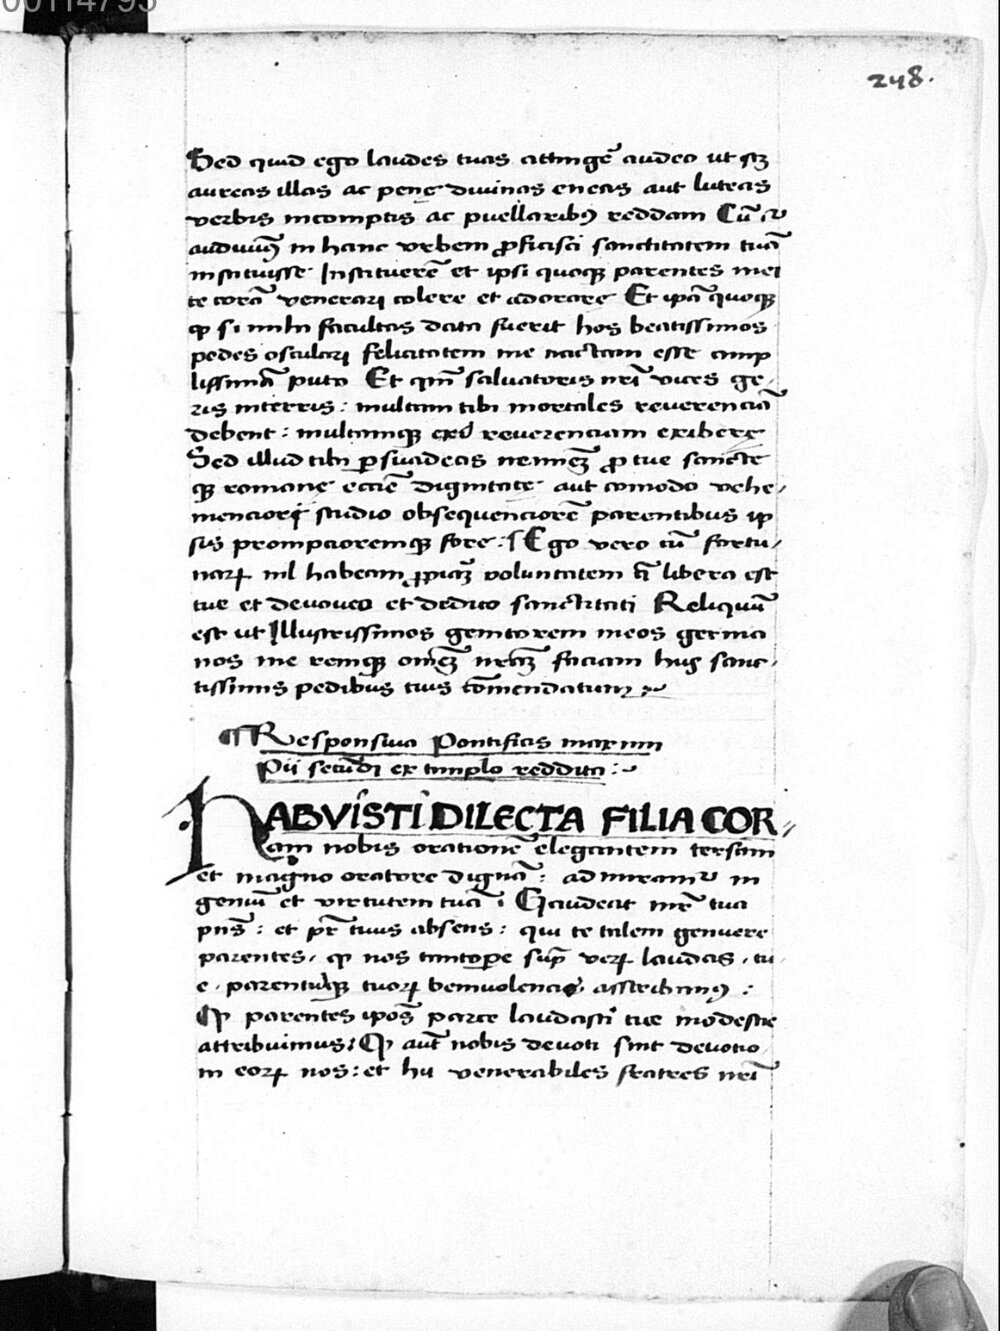 00114795
248.
Sed quid ego laudes tuas attingē audeo ut sꝫ
aureas illas ac penę divinas eneas aut luteas
verbis incomptis ac puellaribꝰ reddam Cū
audivimꝰ in hanc urbem ꝓficisci sanctitatem tuā
instituisse Instituerē et ipsi quoqꝫ parentes mei
te corā venerari colere et adorare Et ipā quoqꝫ
ꝙ si mihi facultas data fuerit hos beatissimos
pedes osculari felicitatem me nactam esse amp
lissimā puto Et qm̄ salvatoris nrī vices ge,
ris interris : multam tibi mortales reverenciā
debent : multamqꝫ reverenciam exibere
Sed illud tibi ꝑsuadeas neminēꝫ ꝓ tue sancte
qꝫ romanę eccīē dignitate aut comodo vehe,
menciori studio obsequenciorē parentibus ip
sis prompcioremqꝫ fore : Ego vero cū fortu,
naꝝ nil habeam ꝓpiāꝫ voluntatem q̄ libera est
tue et devoveo et dedico sanctitati Reliquū
est ut Illustrissimos genitorem meos germa
nos me remqꝫ om̄ēꝫ nr̄aꝫ faciam hys sanc,
tissimis pedibus tuis cōmendatum
¶ Responsiva Pontificis maximi
Pii secūdi ex templo reddita :
HABVISTI DILECTA FILIA COR,
am nobis orationē elegantem tersam
et magno oratore dignā : admiramur in
geniū et virtutem tuā : Gaudeat mr̄ tua
pn̄s : et pr̄ tuus absens : qui te talem genuere
parentes, ꝙ nos tantoꝑe suꝑ veꝝ laudas , tu,
e , parentumqꝫ tuoꝝ benivolencię, asscribimꝰ :
Ꝙ parentes ipōs parce laudasti tue modestie
attribuimus : Ꝙ aut̄ nobis devoti sint devotio,
ni eoꝝ nos : et hii venerabiles fratres nrī